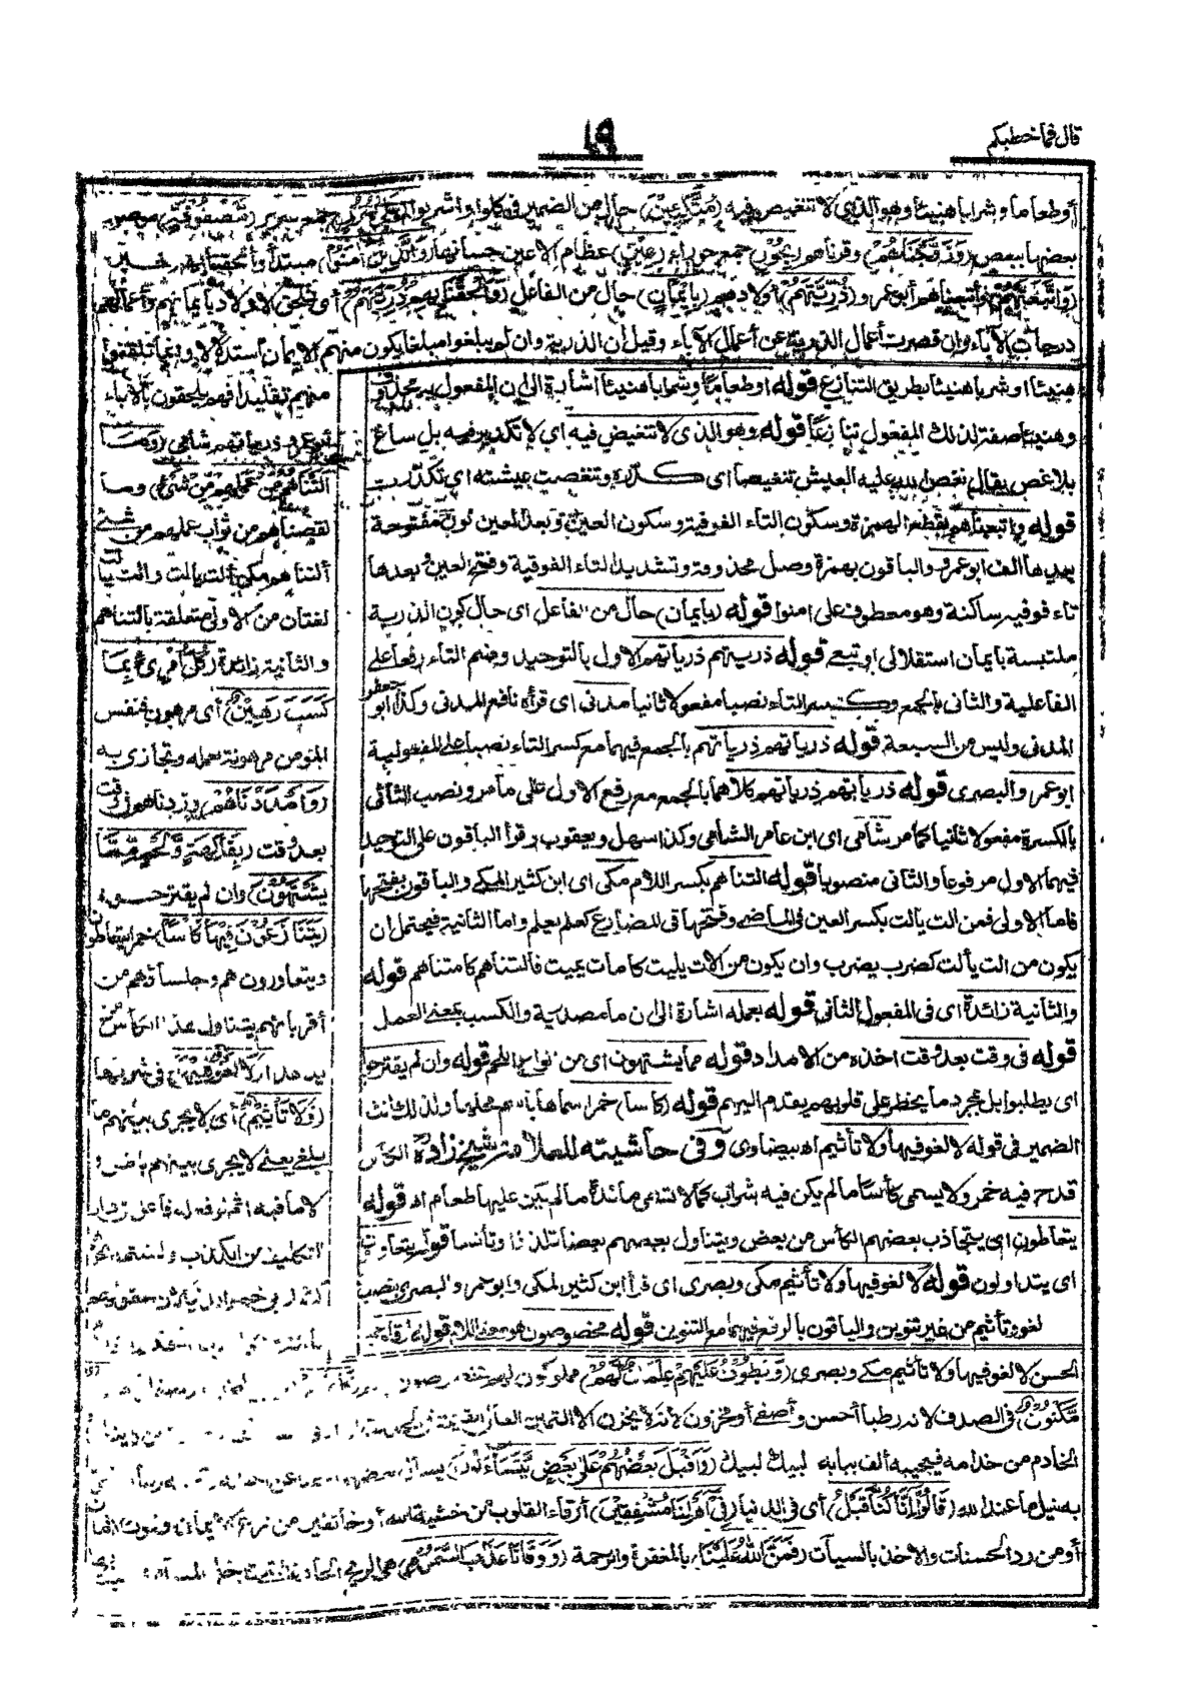 قال فما خطبكم
١٩
أو طعاما وشرابا هنيئا وهو الذي لا تنغيص فيه (متكئين) حال من الضمير في كلوا واشربوا (على سرر) جمع سرير (مصفوفة) موصول
بعضها ببعض (وزوجناهم) وقرناهم (بحور) جمع حوراء (عين) عظام الأعين حسانها (والذين آمنوا) مبتدأ و ألحقنا بهم خبره
(واتبعتهم) وأتبعناهم أبو عمرو (ذريتهم) أولادهم (بإيمان) حال من الفاعل (ألحقنا بهم ذريتهم) أي نلحق الأولاد بإيمانهم وأعمالهم
درجات الآباء وإن قصرت أعمال الذرية عن أعمال الآباء وقيل إن الذرية وإن لم يبلغوا مبلغا يكون منهم الإيمان استدلالا وإنما تلقنوا
منهم تقليدا فهم يلحقون بالآباء
أبو عمرو ذرياتهم شامي (وما
ألتناهم من عملهم من شيء) وما
نقصناهم من ثواب عملهم من شيء
ألتناهم مكي ألت يألت وألت يألت
لغتان من الأولى متعلقة بألتناهم
والثانية زائدة (كل امرئ بما
كسب رهين) أي مرهون فنفس
المؤمن مرهونة بعمله وتجازى به
(وأمددناهم) وزدناهم في وقت
بعد وقت (بفاكهة ولحم مما
يشتهون) وإن لم يقترحوا
(يتنازعون فيها كأسا) خمرا يتعاطون
ويتعاورون هم وجلساؤهم من
أقربائهم يتناول هذا الكأس من
يد هذا (لا لغو فيها) في شربها
(ولا تأثيم) أي لا يجري بينهم ما
يلغي يعني لا يجري بينهم باطل و
لا ما فيه اثم لو فعله فاعل في دار
التكليف من الكذب والشتم
هنيئا او شربا هنيئا بطريق التنازع قوله او طعاما وشرابا هنيئا اشارة الى ان المفعول به محذوف
وهنيئا صفة لذلك المفعول تنازعا قوله وهو الذى لا تنغيص فيه اى لا تكدير فيه بل ساغ
بلا غص يقال نغص الله عليه العيش تنغيصا اى كدره وتنغصت عيشته اى تكدرت
قوله واتبعناهم بقطع الهمزة وسكون التاء الفوقية وسكون العين وبعد العين نون مفتوحة
بعدها الف ابو عمرو والباقون بهمزة وصل محذوفة وتشديد التاء الفوقية وفتح العين وبعدها
تاء فوقية ساكنة وهو معطوف على امنوا قوله (بايمان) حال من الفاعل اى حال كون الذرية
ملتبسة بايمان استقلالى او تبعى قوله ذريتهم ذرياتهم الاول بالتوحيد وضم التاء رفعا على
الفاعلية والثانى بالجمع وكسر التاء نصبا مفعولا ثانيا مدنى اى قرأه نافع المدنى وكذا ابو جعفر
المدنى وليس من السبعة قوله ذرياتهم ذرياتهم بالجمع فيهما مع كسر التاء نصبا على المفعولية
ابو عمرو البصرى قوله ذرياتهم ذرياتهم كلاهما بالجمع مع رفع الاول على ما مر ونصب الثانى
بالكسرة مفعولا ثانيا كما مر شامى اى ابن عامر الشامى وكذا سهل ويعقوب وقرأ الباقون على التوحيد
فيهما الاول مرفوعا والثانى منصوبا قوله التناهم بكسر اللام مكى اى ابن كثير المكى والباقون بفتحها
فاما الاولى فمن الت يألت بكسر العين فى الماضى وفتحها فى المضارع كعلم يعلم واما الثانية فيحتمل ان
يكون من الت يألت كضرب يضرب وان يكون من الات يليت كامات يميت فالتناهم كامتناهم قوله
والثانية زائدة اى فى المفعول الثانى قوله بعمله اشارة الى ان ما مصدرية والكسب بمعنى العمل
قوله فى وقت بعد وقت اخذه من الامداد قوله مما يشتهون اى من انواع اللحم قوله وان لم يقترحوا
اى يطلبوا بل بمجرد ما يخطر على قلوبهم يقدم اليهم قوله (كاسا) خمرا سماها باسم محلها ولذلك انث
الضمير فى قوله لا لغو فيها ولا تأثيم اه بيضاوى وفى حاشيته للعلامة شيخ زاده الكأس
قدح فيه خمر ولا يسمى كأسا ما لم يكن فيه شراب كما لا تسمى مائدة ما لم يكن عليها طعام اه قوله
يتعاطون اى يتجاذب بعضهم الكأس من بعض ويتناول بعضهم بعضا تلذذا وتأنسا قوله يتعاورون
اى يتداولون قوله لا لغو فيها ولا تأثيم مكى وبصرى اى قرأ ابن كثير المكى وابو عمرو البصرى بنصب
لغو وتأثيم من غير تنوين والباقون بالرفع فيهما مع التنوين قوله مخصوصون هو معنى اللام قوله ارقاء
الحسن لا لغو فيها ولا تأثيم مكي وبصري (ويطوف عليهم غلمان لهم) مملوكون لهم مخصوصون
مكنون) في الصدف لأنه رطبا أحسن وأصفى أو مخزون لأنه لا يخزن إلا الثمين الغالي القيمة
الخادم من خدامه فيجيبه ألف ببابه لبيك لبيك (وأقبل بعضهم على بعض يتساءلون) يسأل بعضهم
به نيل ما عند الله (قالوا إنا كنا قبل) أي في الدنيا (في أهلنا مشفقين) أرقاء القلوب من خشية الله أو خائفين من نزع الإيمان وفوت الأمان
أو من رد الحسنات والأخذ بالسيآت (فمن الله علينا) بالمغفرة والرحمة (ووقانا عذاب السموم) هي الريح الحارة